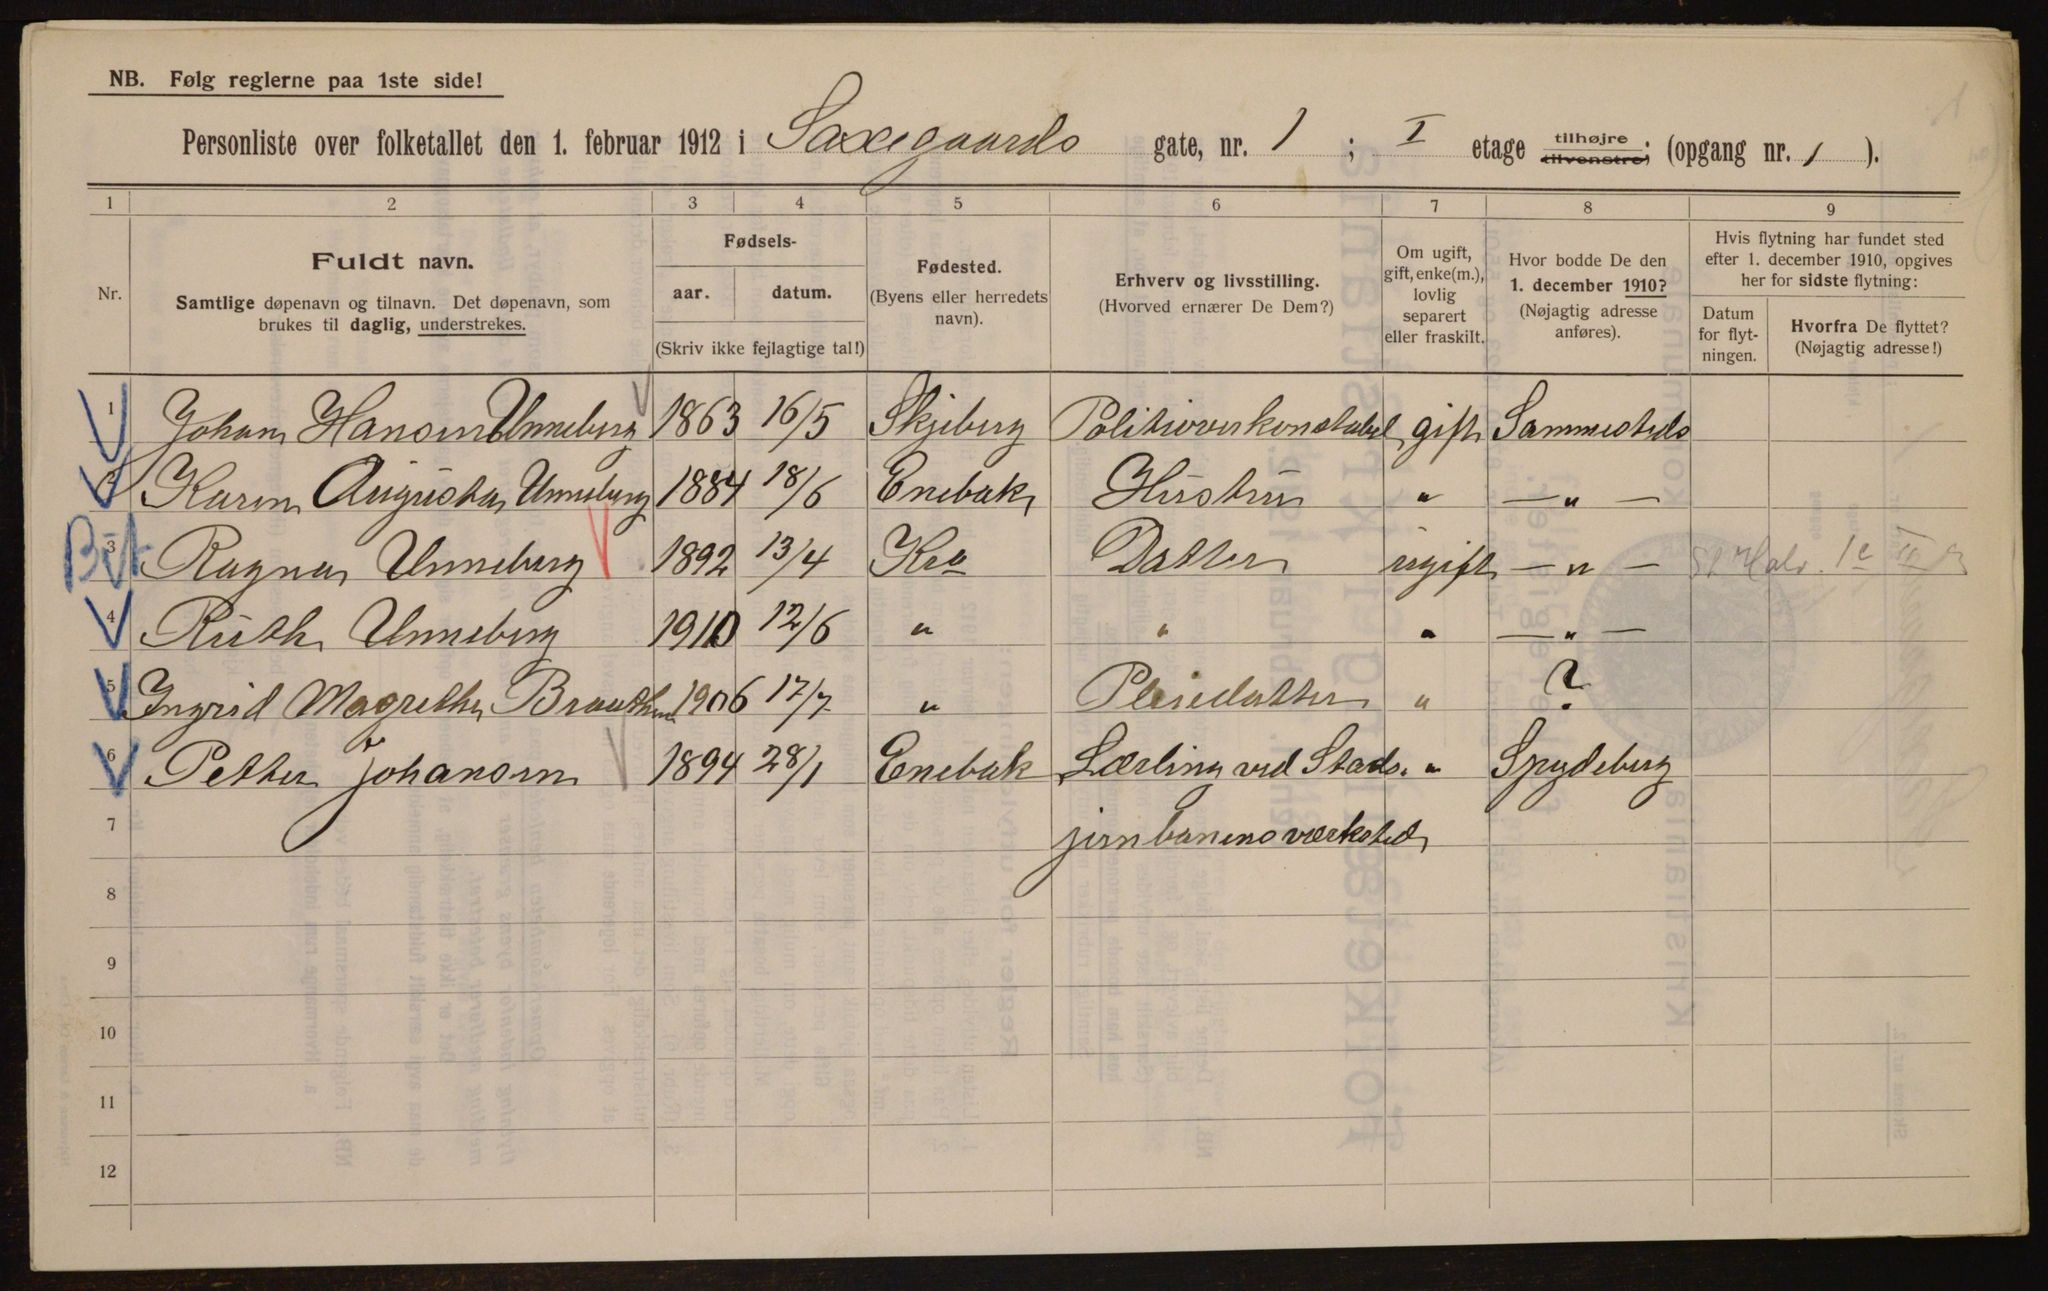 NB. Følg reglerne paa 1ste side!
Personliste over folketallet den 1. februar 1912 i Saxegaards gate, nr. 1 ; I etage tilhøjre. tilvenstre; (opgang nr. 1 ).
1 2 3 4 5 6 7 8 9
Nr.
Fuldt navn.
Samtlige døpenavn og tilnavn. Det døpenavn, som
brukes til daglig, understrekes.
Fødsels-
aar. datum.
(Skriv ikke fejlagtige tal!)
Fødested.
(Byens eller herredets
navn).
Erhverv og livsstilling.
(Hvorved ernærer De Dem?)
Om ugift,
gift, enke(m.),
lovlig
separert
eller fraskilt.
Hvor bodde De den
1. december 1910?
(Nøjagtig adresse
anføres).
Hvis flytning har fundet sted
efter 1. december 1910, opgives
her for sidste flytning:
Datum
for flyt-
ningen.
Hvorfra De flyttet?
(Nøjagtig adresse!)
1 Johan Hansen Unneberg 1863 16/5 Skjeberg Politioverkonstabel gift Sammesteds
2 Karen Augusta Unneberg 1884 18/6 Enebak Hustru " — " —
3 Ragna Unneberg 1892 13/4 Kra Datter ugift — " —
4 Ruth Unneberg 1910 12/6 " " " — " —
5 Ingrid Magrethe 1906 17/7 " Pleiedatter " ?
6 Petter Johansen 1894 28/1 Enebak Lærling ved Stads. " Spydeberg
7 jernbanens værksted
8
9
10
11
12